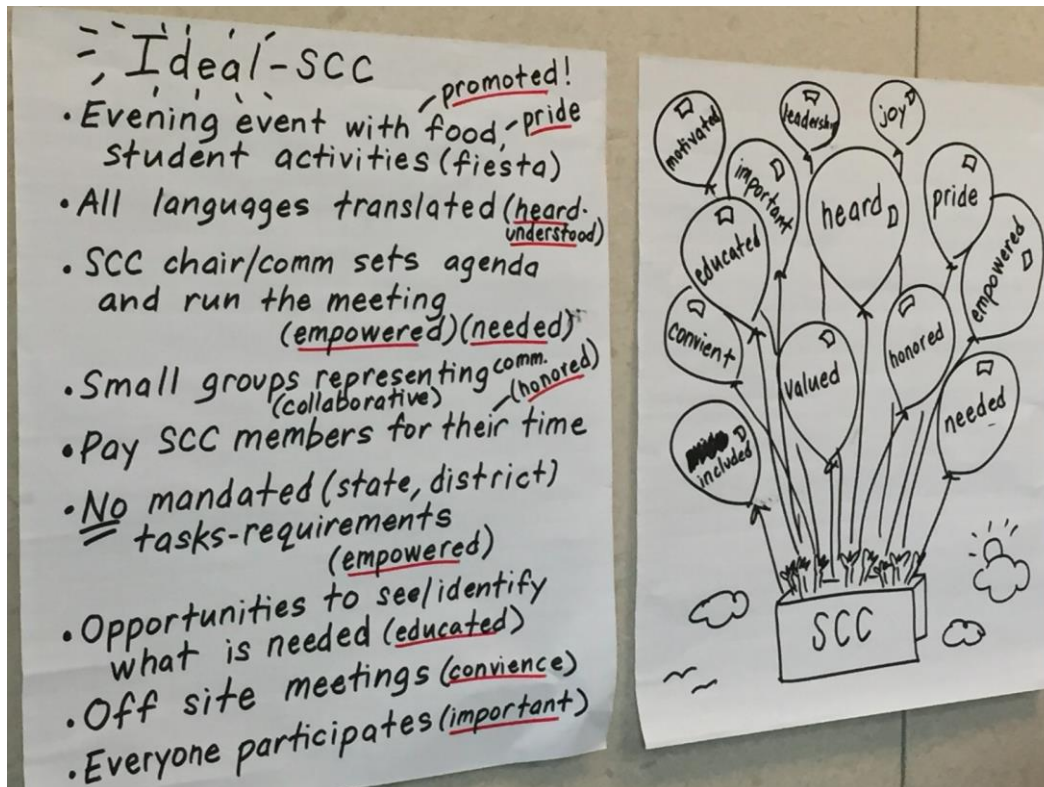 Ideal-SCC
promoted!
• Evening event with food, pride
student activities (fiesta)
• All languages translated (heard-
understood)
• SCC chair/comm sets agenda
and run the meeting
(empowered) (needed)
• Small groups representing comm.
(collaborative) (honored)
• Pay SCC members for their time
• No mandated (state, district)
tasks-requirements
(empowered)
• Opportunities to see/identify
what is needed (educated)
• Off site meetings (convience)
• Everyone participates (important)
motivated
leadership
joy
important
heard
pride
educated
empowered
convient
valued
honored
needed
included
SCC